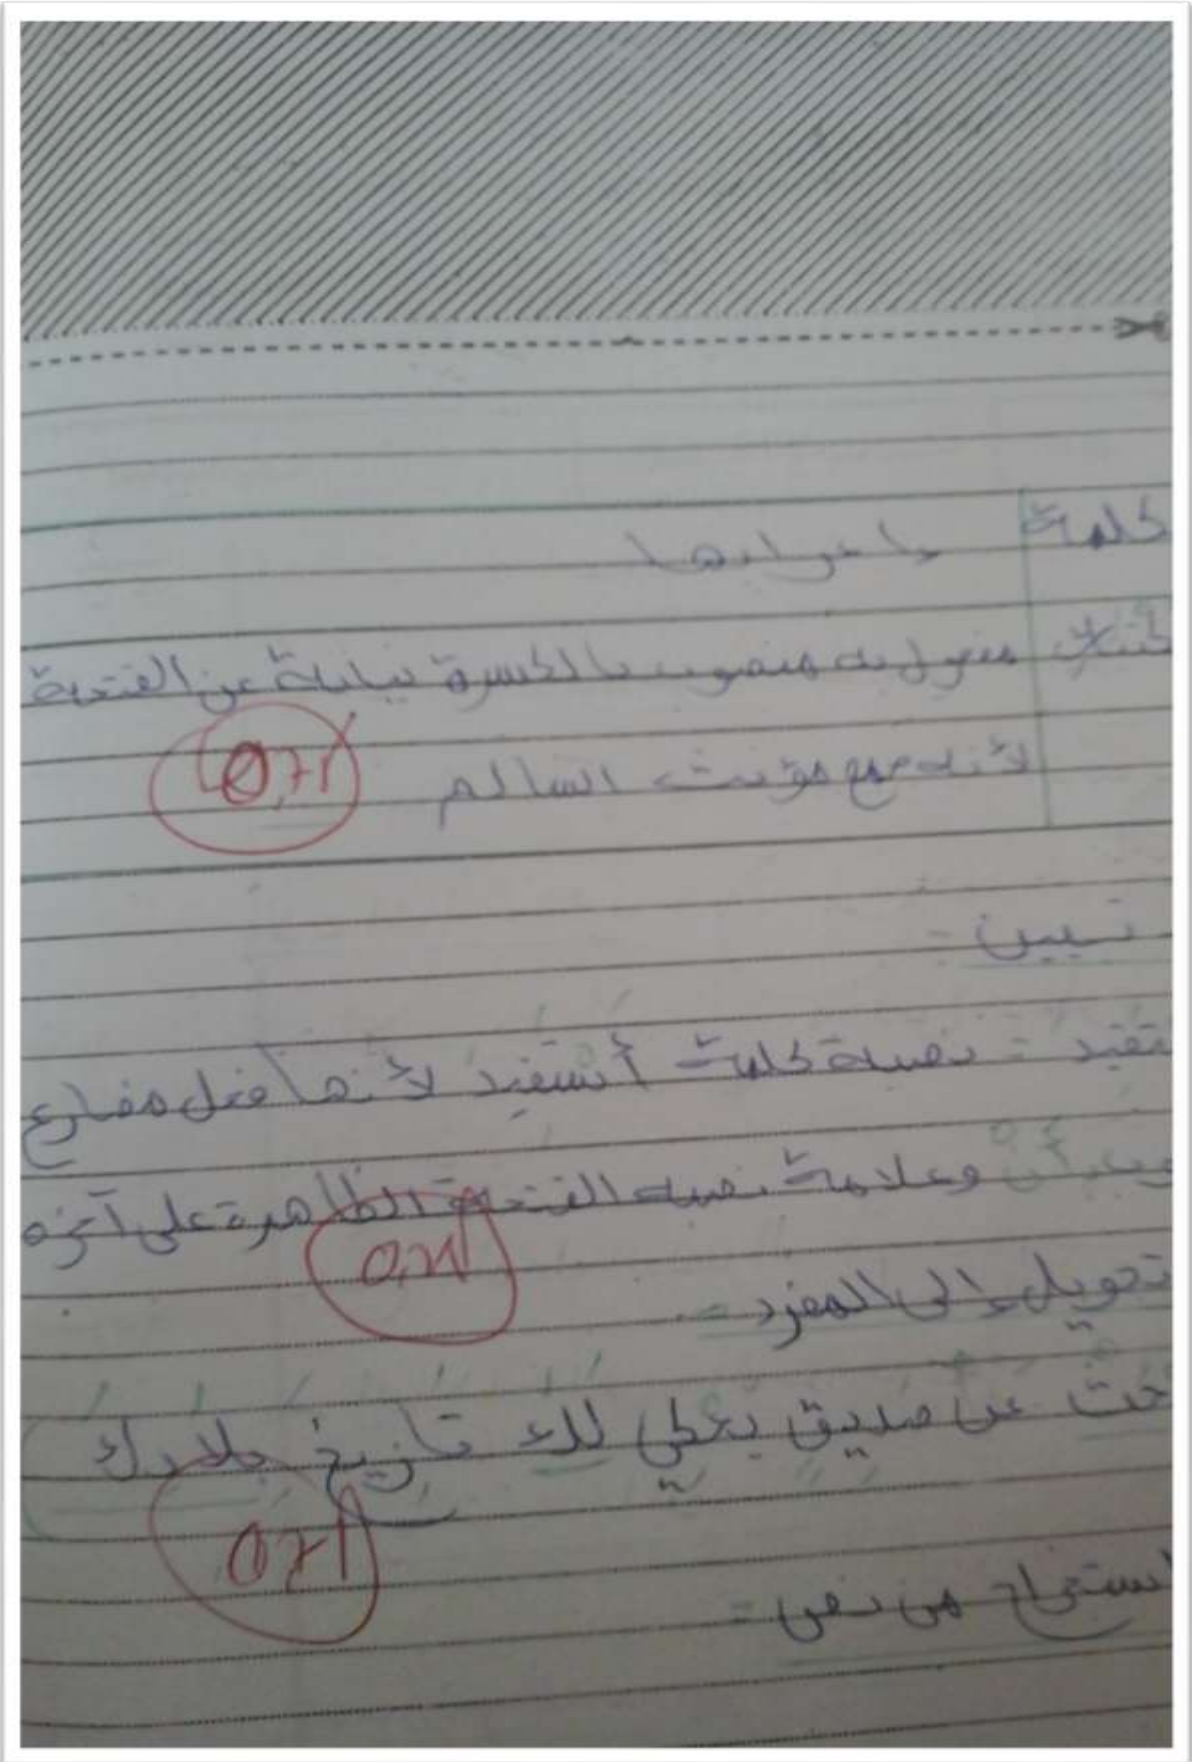 كلمة إعرابها
مفعول به منصوب بالكسرة نيابة عن الفتحة
لأنه جمع مؤنث السالم
تبيين -
نصبة كلمة أستفيد لأنها فعل مضارع
وعلامة نصبه الفتحة الظاهرة على آخره
تحويل إلى المفرد -
عن صديق يعطي لك تاريخ بلادك
من نص -